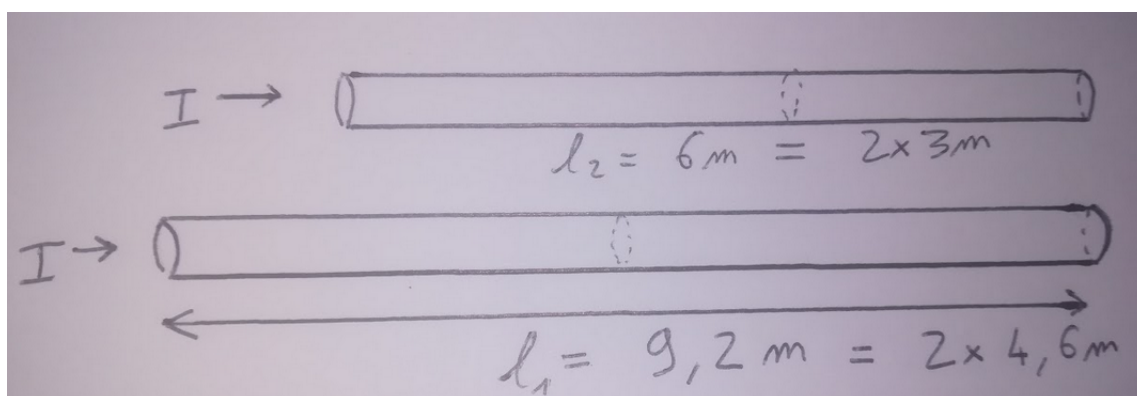 I →
l₂ = 6m = 2×3m
I →
l₁ = 9,2m = 2×4,6m